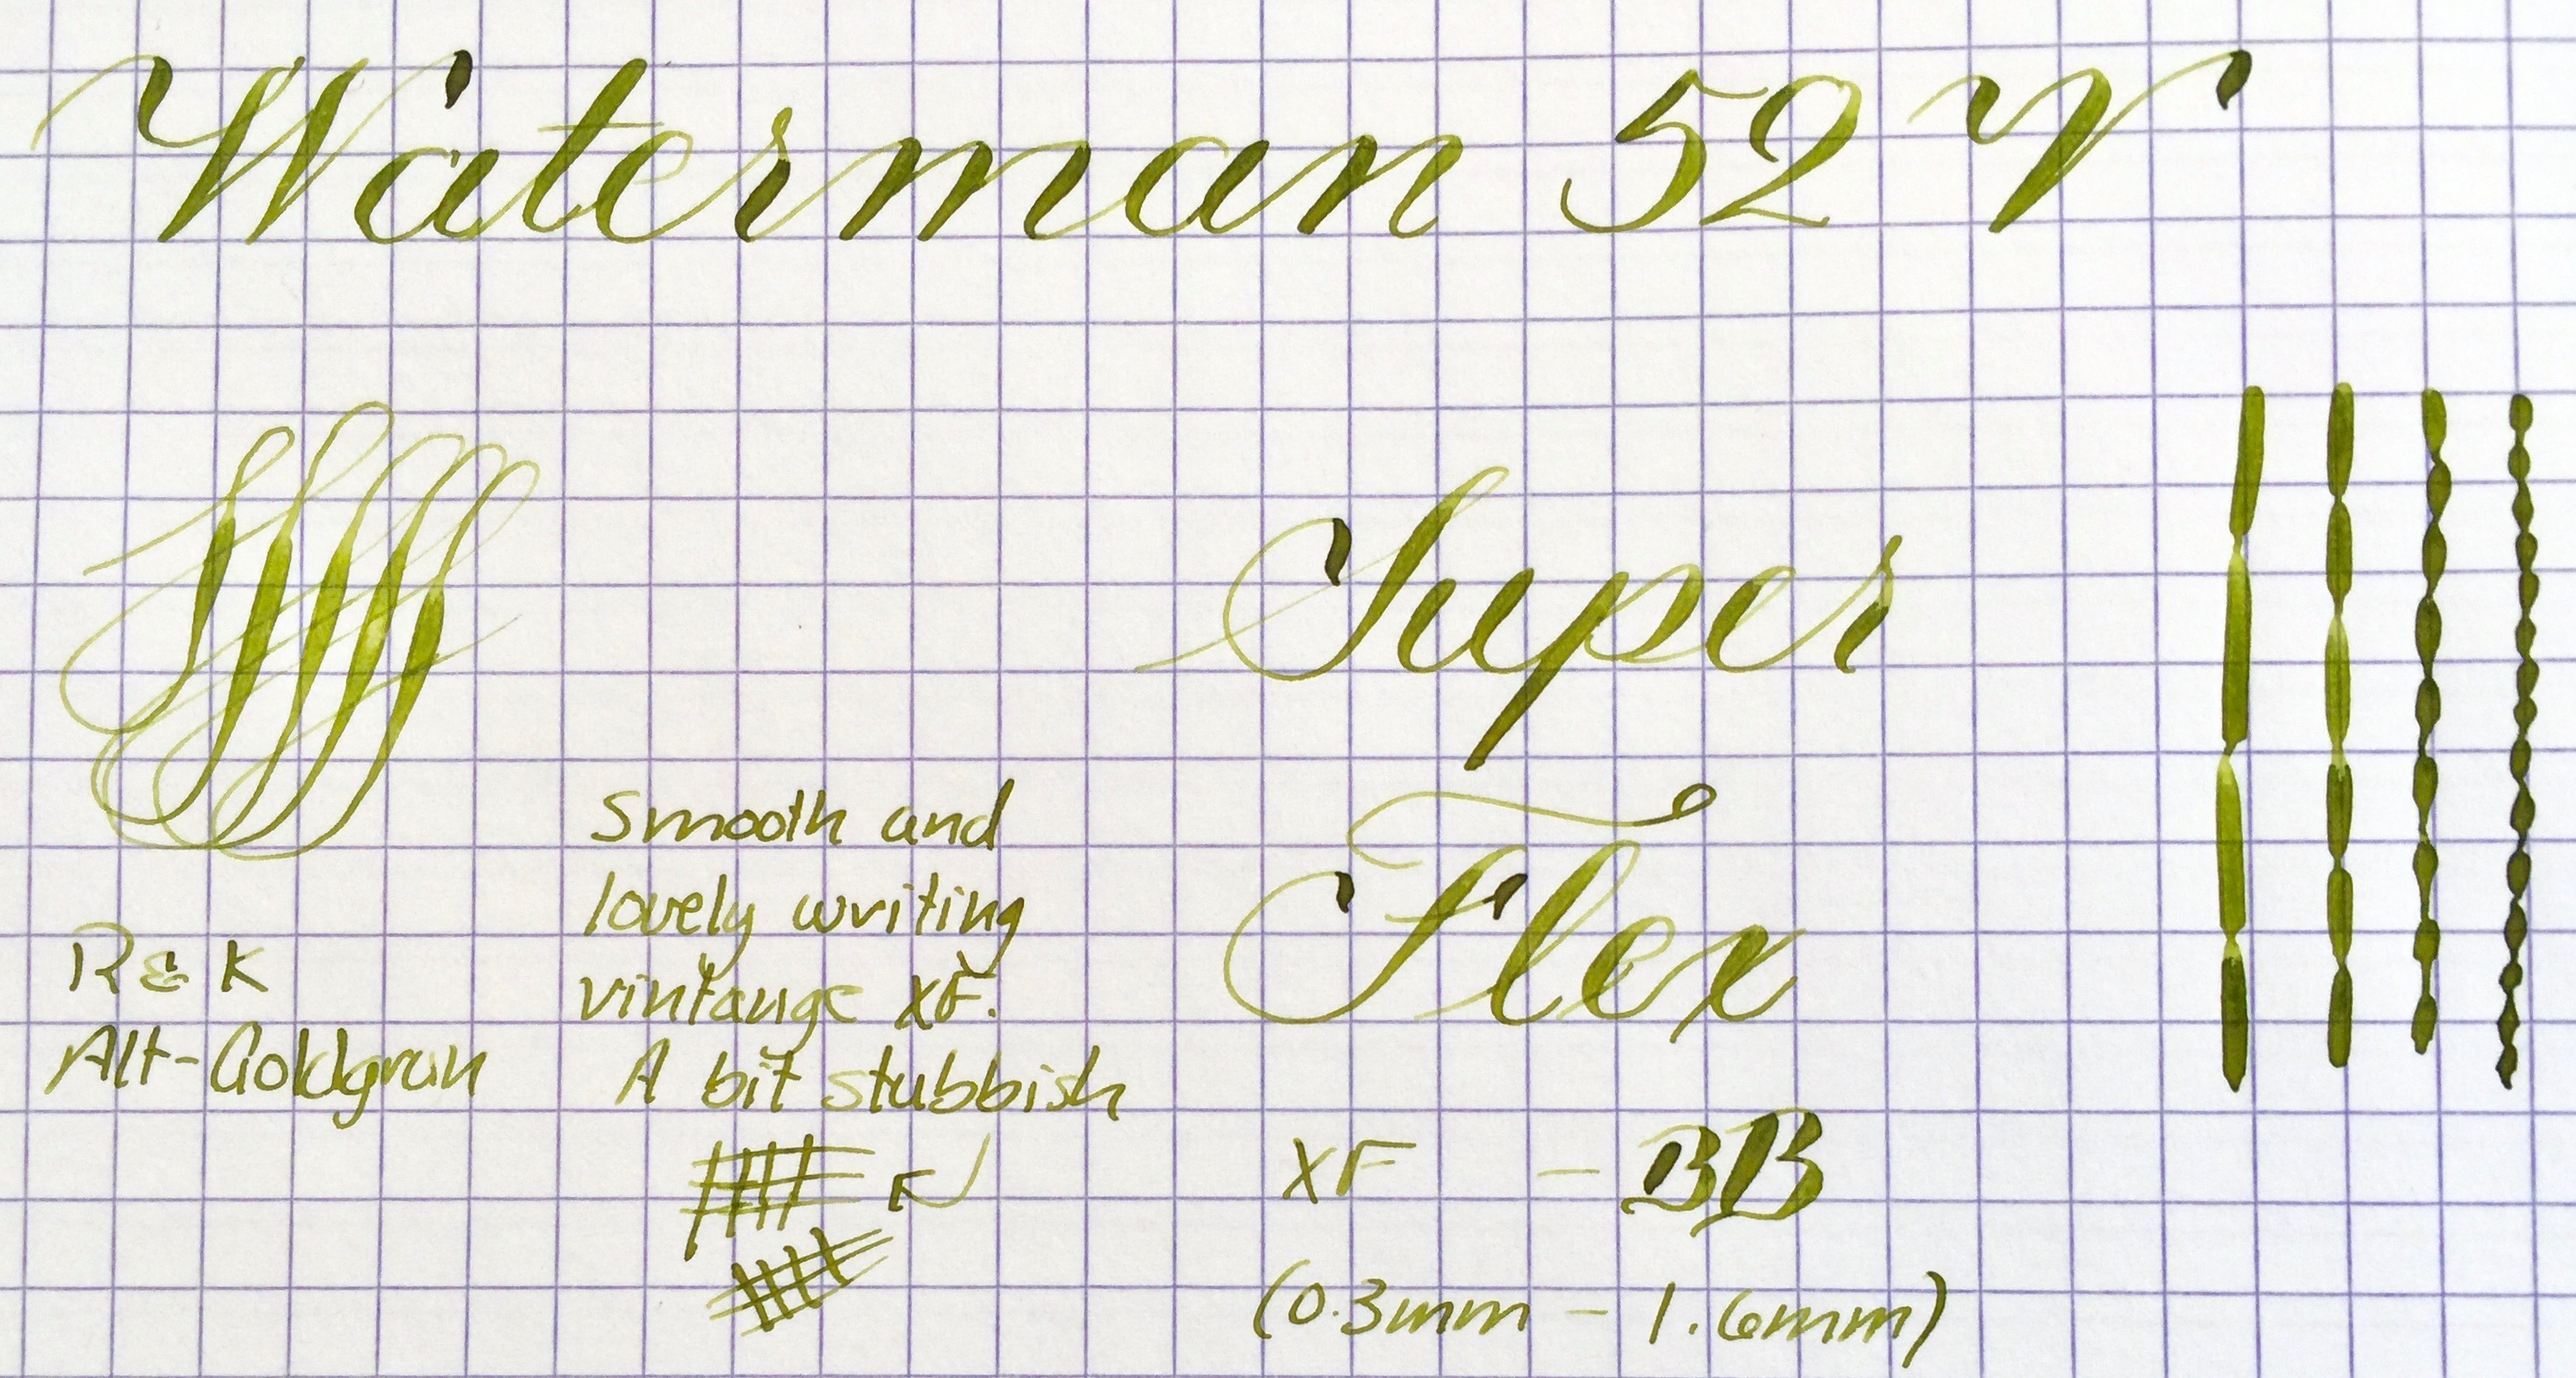 Waterman 52 V
Super
Flex
Smooth and
lovely writing
vintange XF.
A bit stubbish
R & K
Alt-Goldgrun
XF - BB
(0.3mm - 1.6mm)